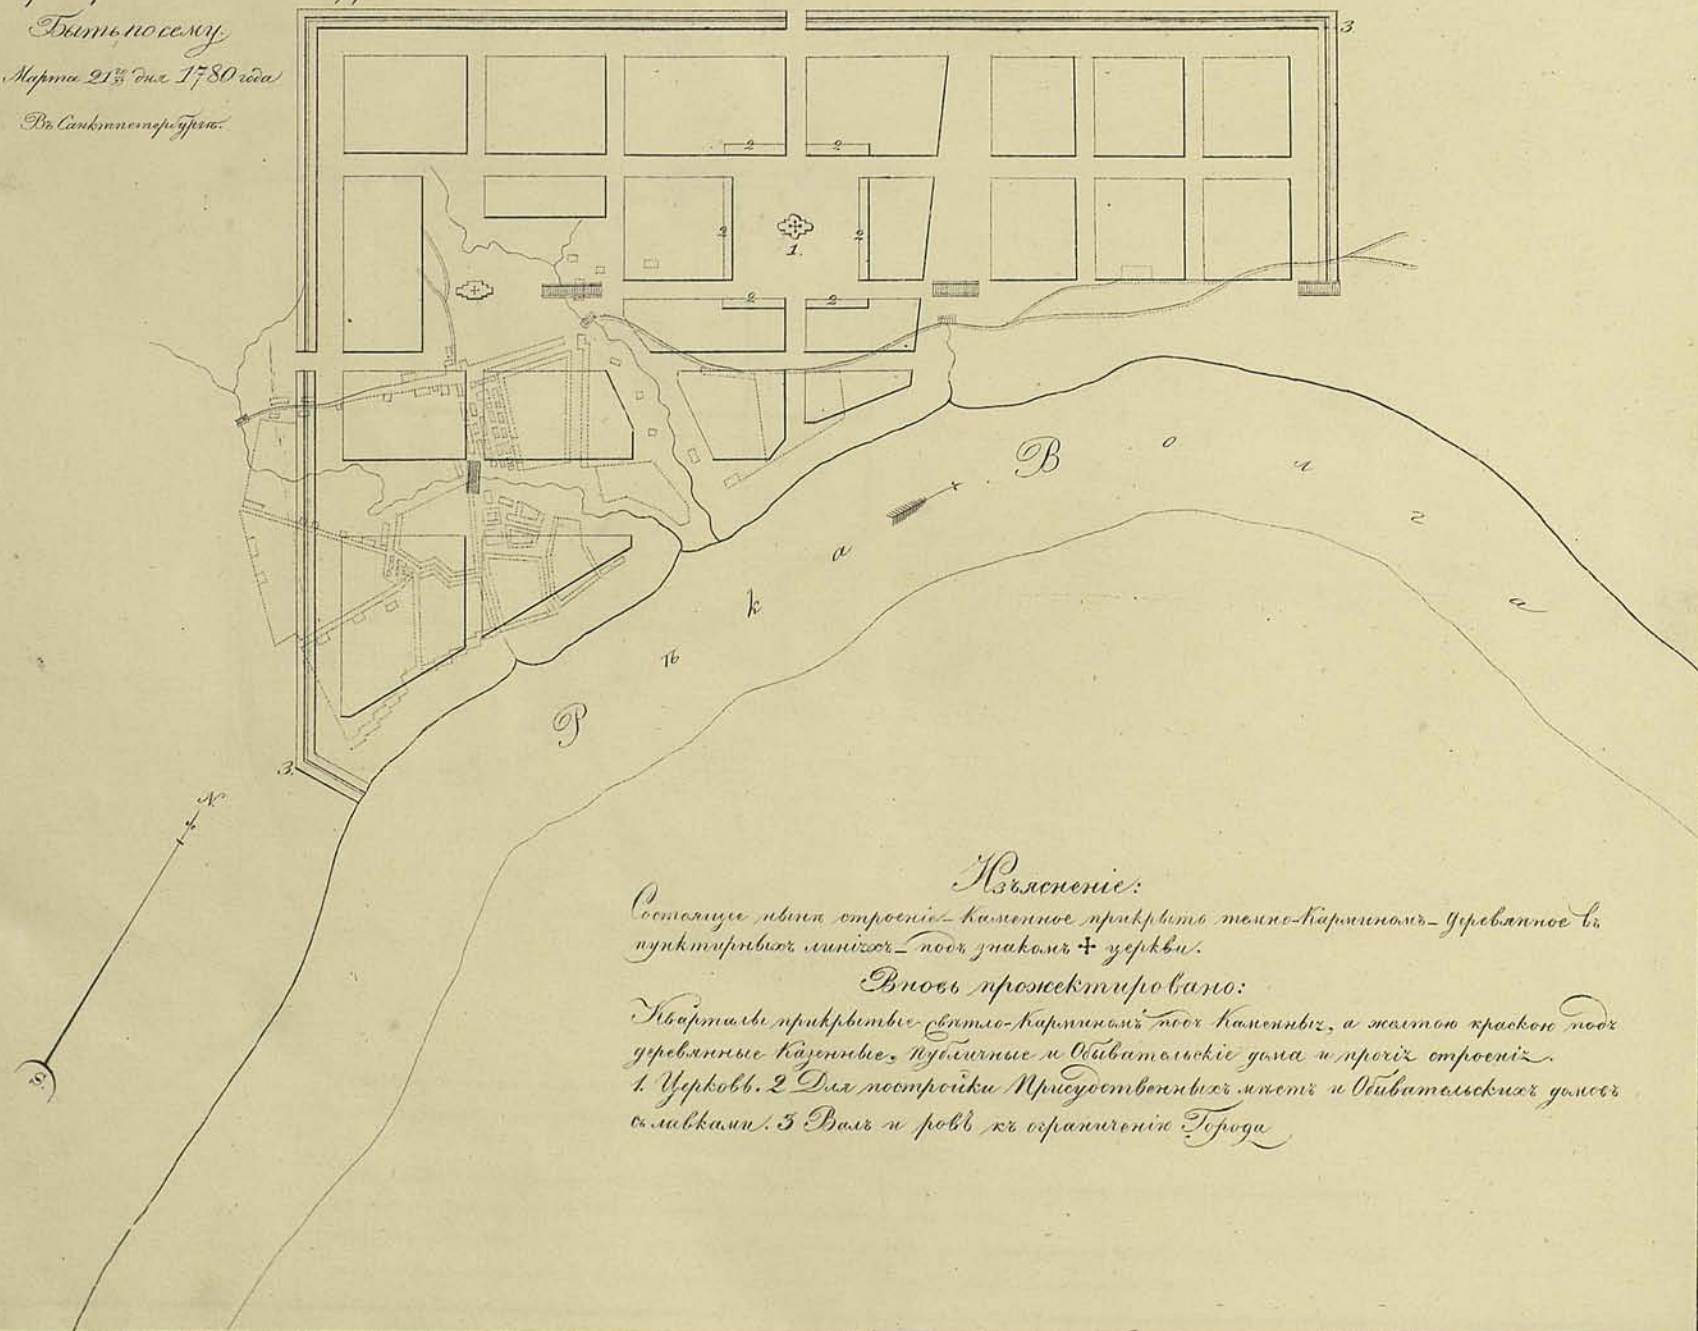 Быть по сему.
Марта 21го дня 1780 года
Въ Санктпетербургѣ.
3.
2 2
2 2
1.
2 2
Рѣка Волга
3.
N.
S.
Изъясненіе:
Состоящее нынѣ строеніе – Каменное прикрыто темно-Карминомъ – деревянное въ
пунктирныхъ линіяхъ – подъ знакомъ ✝ церкви.
Вновь прожектировано:
Кварталы прикрытые свѣтло-Карминомъ подъ Каменныя, а желтою краскою подъ
деревянные Казенные, Публичные и Обывательскіе дома и прочія строенія.
1. Церковь. 2 Для постройки Присудственныхъ мѣстъ и Обывательскихъ домовъ
съ лавками. 3 Валъ и ровъ къ ограниченію Города